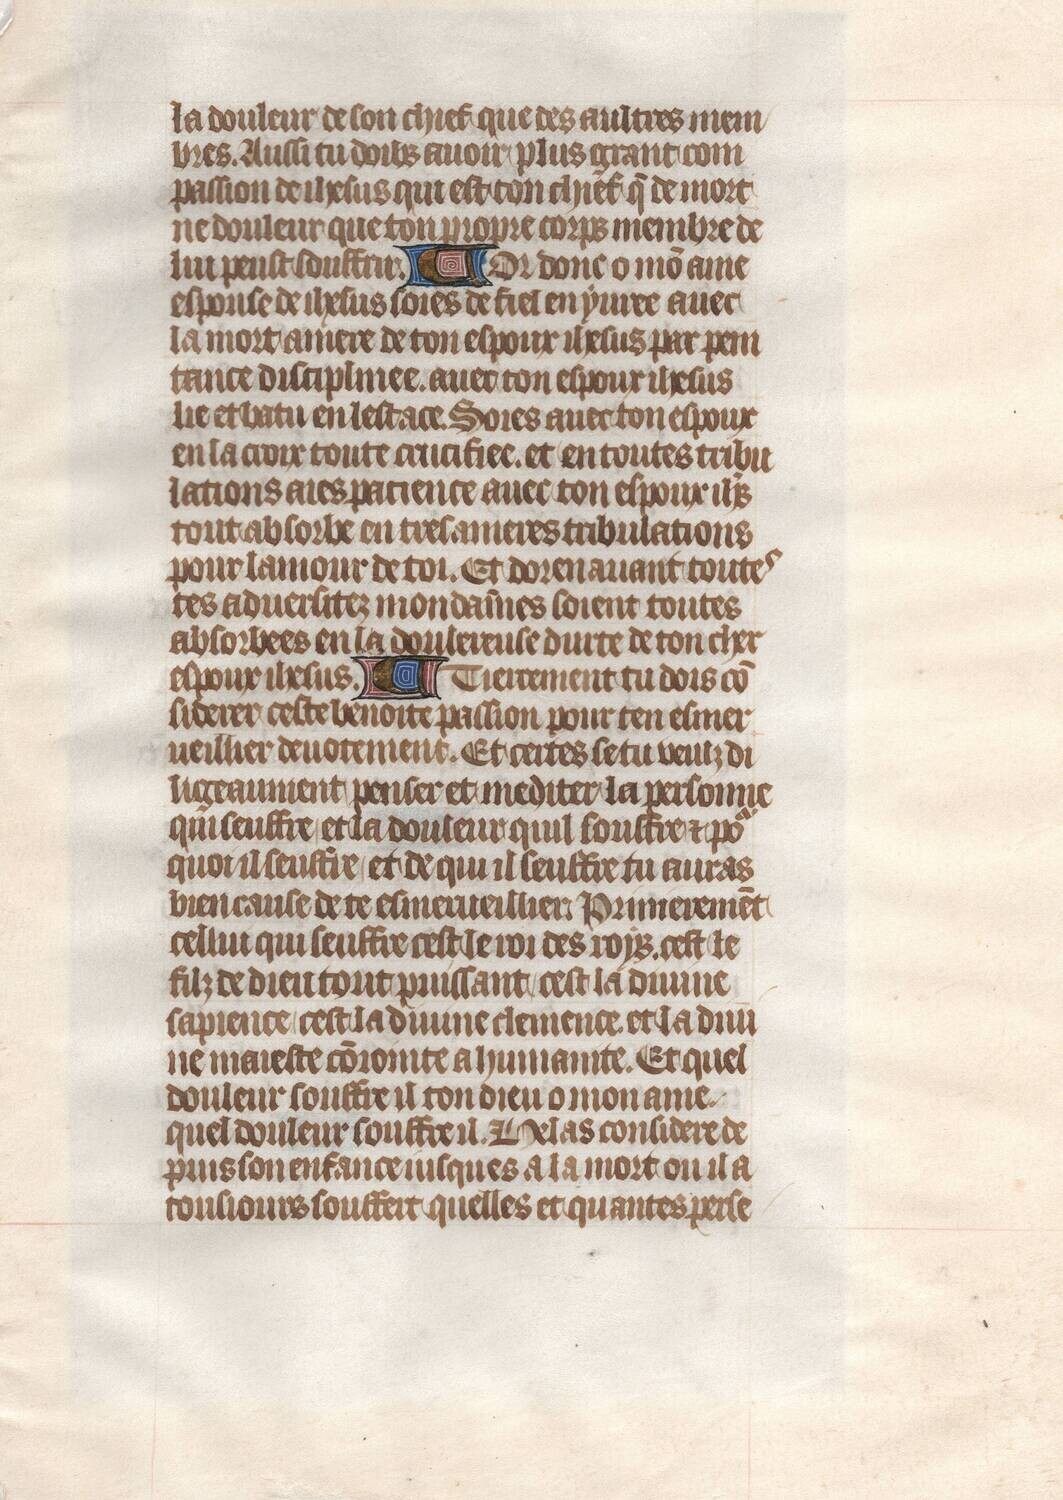 la douleur de son chief que des aultres mem
bres. Aussi tu doibs auoir plus grant com
passion de ihesus qui est ton chief q̃ de mort
ne douleur que ton propre corps membre de
lui peust souffrir. ¶ Or donc o mō ame
espouse de ihesus soies de fiel enyuree auec
la mort amere de ton espoux ihesus par peni
tance disciplinee. auec ton espoux ihesus
lie et batu en lestace. Soies auec ton espoux
en la croix toute crucifiee. et en toutes tribu
lations aies pacience auec ton espoux ihūs
tout absorbe en tresameres tribulations
pour lamour de toi. Et dorenauant toutes
tes aduersitez mondaines soient toutes
absorbees en la doulereuse durte de ton cher
espoux ihesus. ¶ Tiercement tu dois cō
siderer ceste benoite passion pour ten esmer
ueillier deuotement. Et certes se tu veulz di
ligeaument penser et mediter la personne
qui seuffre et la douleur quil souffre ⁊ po͛
quoi il seuffre et de qui il seuffre tu auras
bien cause de te esmerueillier. Primeremēt
cellui qui seuffre cest le roi des rois. cest le
filz de dieu tout puissant cest la diuine
sapience cest la diuine clemence. et la diui
ne maieste cōiointe a humanite. Et quel
douleur souffre il ton dieu o mon ame.
quel douleur souffre il. Helas considere de
puis son enfance iusques a la mort ou il a
tousiours souffert quelles et quantes perse